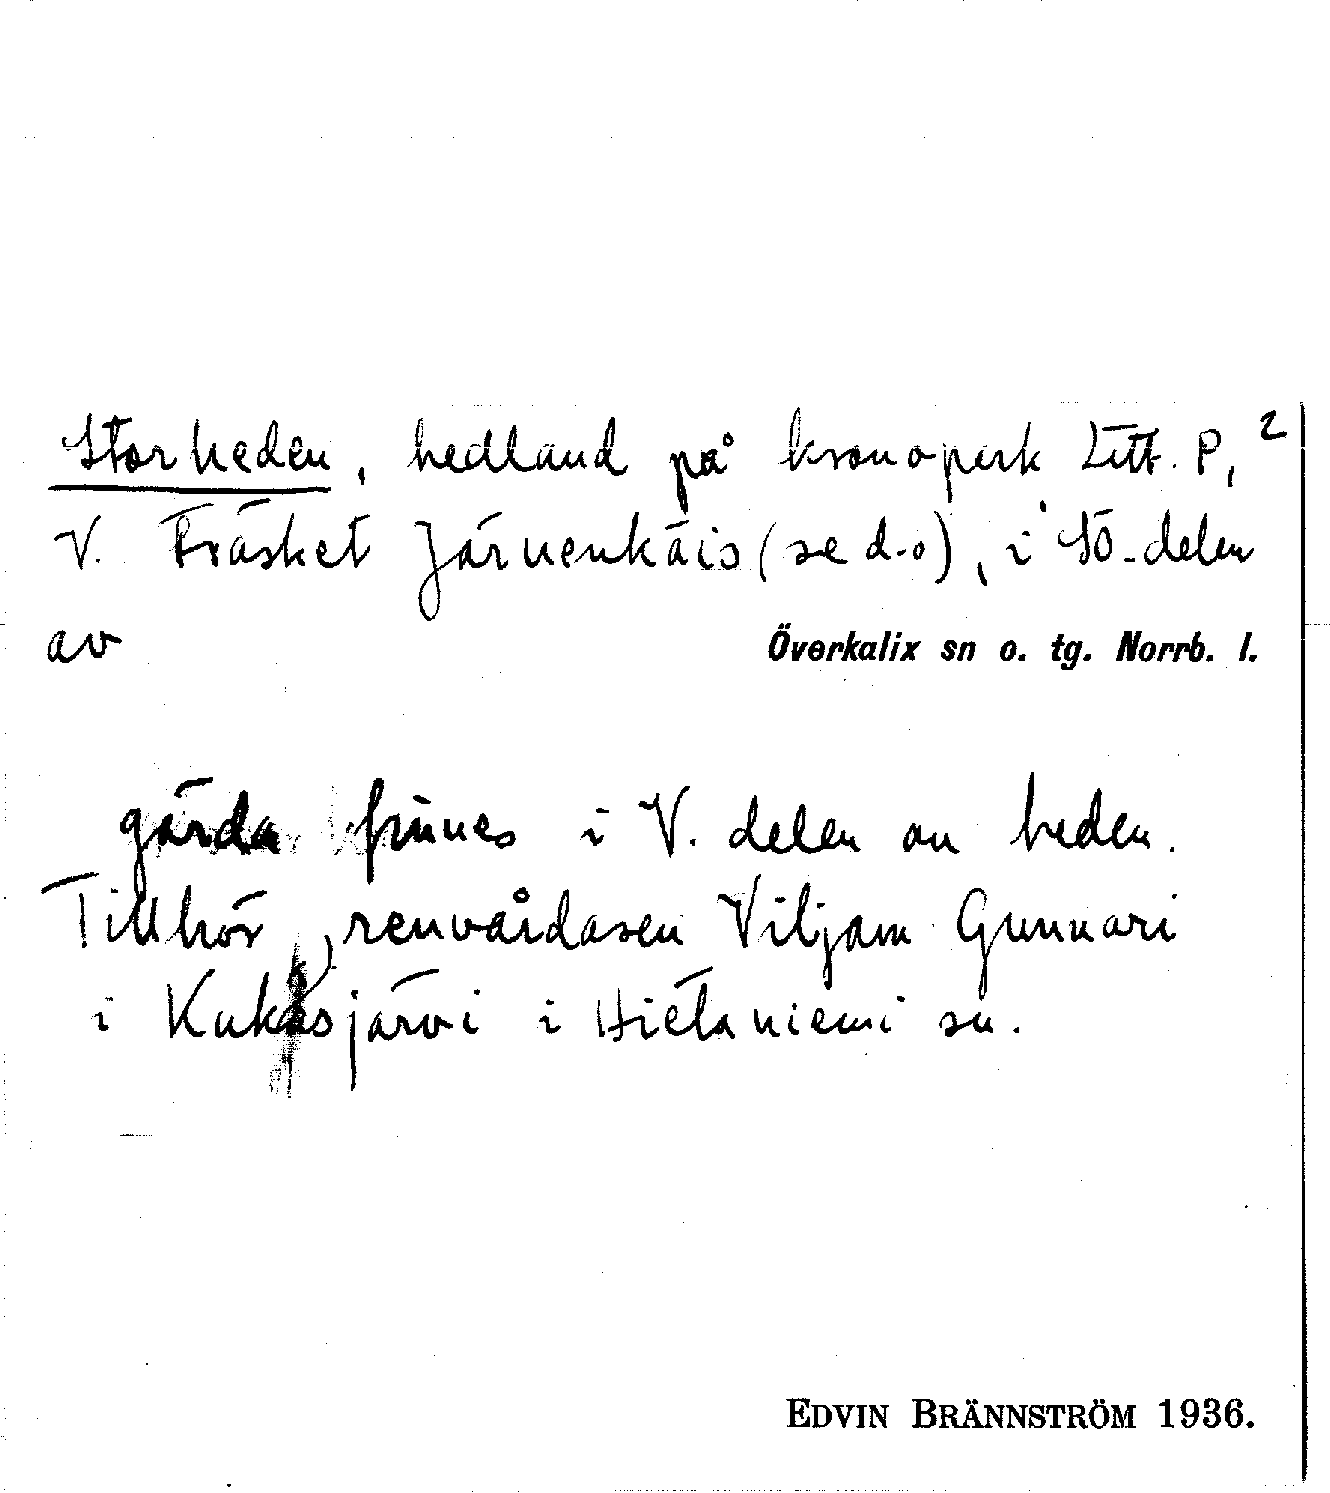 Storheden, hedland på kronopark Litt. P, 2
V. Träsket Järvenkäis (se d.o), i SÖ-delen
av
Överkalix sn o. tg. Norrb. l.
gärda finnes i V. delen av heden.
Tillhör renvårdaren Viljam Gunnari
i Kukasjärvi i Hietaniemi sn.
EDVIN BRÄNNSTRÖM 1936.